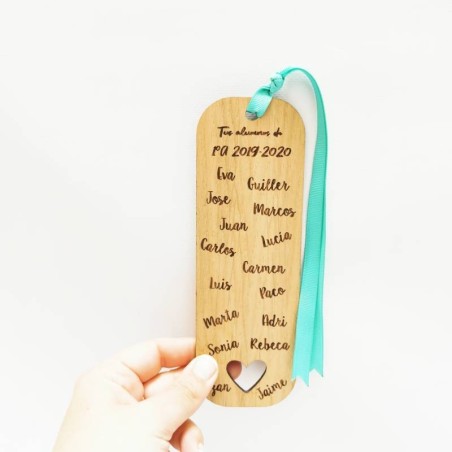 Tus alumnos de
1ºA 2019-2020
Eva
Guitter
Jose
Marcos
Juan
Lucia
Carlos
Carmen
Luis
Paco
Marta
Adri
Sonia
Rebeca
Jaime